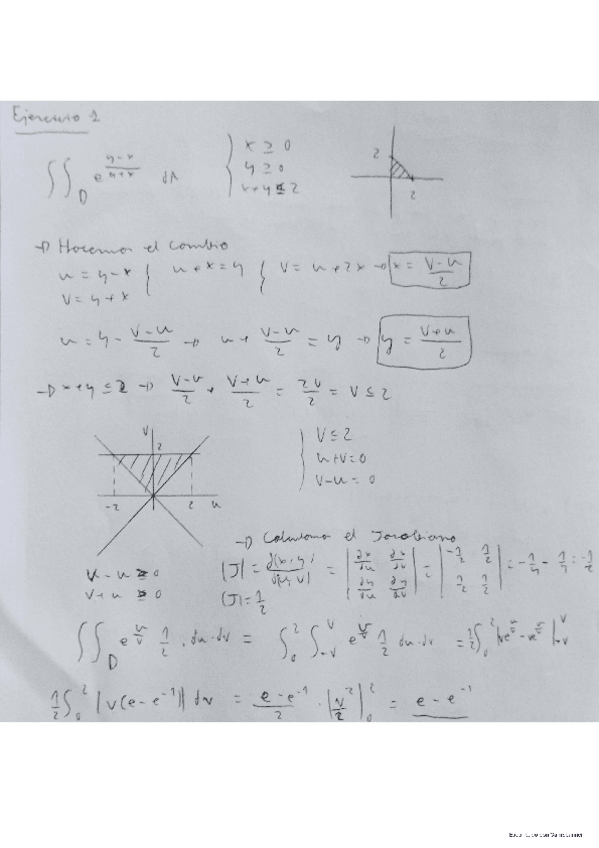 Ejercicio 1
∬_D e^{(y-x)/(y+x)} dA { x ≥ 0
y ≥ 0
x+y ≤ 2
2
2
→ Hacemos el cambio
u = y-x } u+x=y { V = u+2x → x = (V-u)/2
V = y+x
u = y - (V-u)/2 → u + (V-u)/2 = y → y = (V+u)/2
→ x+y ≤ 2 → (V-u)/2 + (V+u)/2 = 2V/2 = V ≤ 2
V
2
-2 2 u
{ V ≤ 2
u+V=0
V-u=0
→ Calculamos el Jacobiano
V-u ≥ 0
V+u ≥ 0
|J| = ∂(x,y)/∂(u,v) = |∂x/∂u ∂x/∂v; ∂y/∂u ∂y/∂v| = |-1/2 1/2; 1/2 1/2| = -1/4 - 1/4 = -1/2
|J| = 1/2
∬_D e^{u/v} 1/2 · du·dv = ∫_0^2 ∫_{-v}^{v} e^{u/v} 1/2 du·dv = 1/2 ∫_0^2 |ve^{u/v} - ve^{u/v}|_{-v}^{v}
1/2 ∫_0^2 |v(e-e^{-1})| dv = (e-e^{-1})/2 · |v²/2|_0^2 = e-e^{-1}